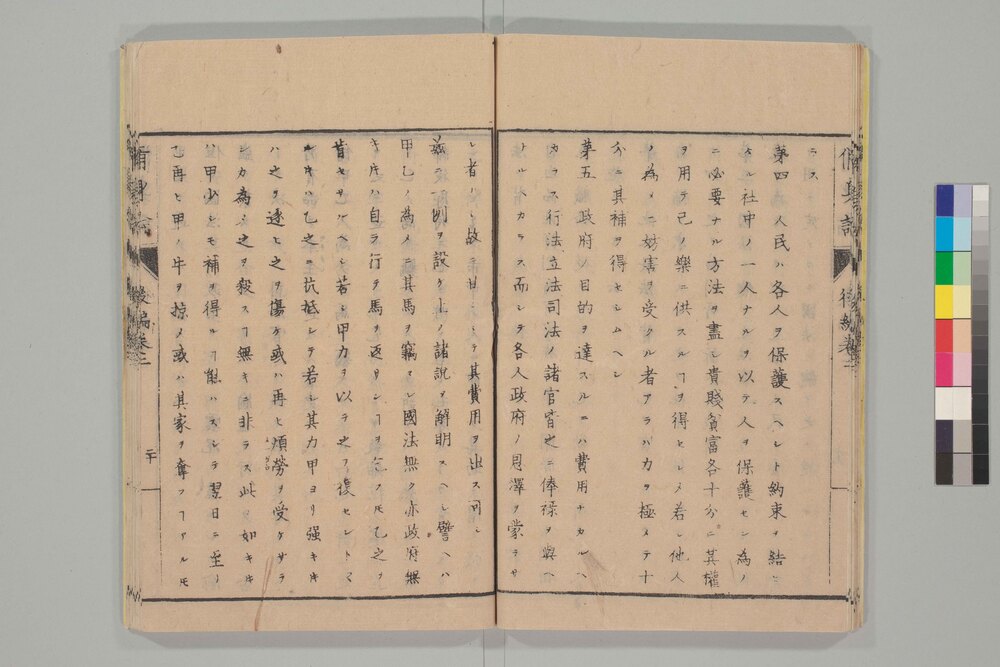 ニス
第四 人民ハ各人ヲ保護スヘシト約束ヲ結ヒ
タル社中ノ一人ナルヲ以テ人ヲ保護セン為メ
ニ必要ナル方法ヲ盡シ貴賤貧富各十分ニ其權
ヲ用テ己ノ樂ニ供スルヿヲ得セシメ若シ他人
ノ為メニ妨害ヲ受クル者アラバ力ヲ極メテ十
分ニ其補ヲ得セシムヘシ
第五 政府ノ目的ヲ達スルニハ費用ナカルヘ
カラス行法立法司法ノ諸官皆之ニ俸禄ヲ與ヘ
サルヘカラス而シテ各人政府ノ恩澤ヲ蒙ラサ
ル者ナシ故ニ甘ンシテ其費用ヲ出ス可シ
茲ニ一例ヲ設ケ上ノ諸説ヲ解明スヘシ譬ヘハ
甲乙ノ為メニ其馬ヲ竊マレ國法無ク亦政府無
キ片ハ自ラ行キ馬ヲ返サンヿヲ乞フ片乙之ヲ
肯セサルヘシ若シ甲力ヲ以テ之ヲ復セントス
レハ乙之ニ抗抵シテ若シ其力甲ヨリ强キ片
ハ之ヲ逐ヒ之ヲ傷ケ或ハ再ヒ煩勞ヲ受ケサラ
ンカ為メ之ヲ殺スヿ無キニ非ラス此ノ如キ片
ハ甲少シモ補ヲ得ルヿ能ハスシテ翌日ニ至リ
乙再ヒ甲ノ牛ヲ掠メ或ハ其家ヲ奪フヿアル圧
脩身論 後編卷二
二十